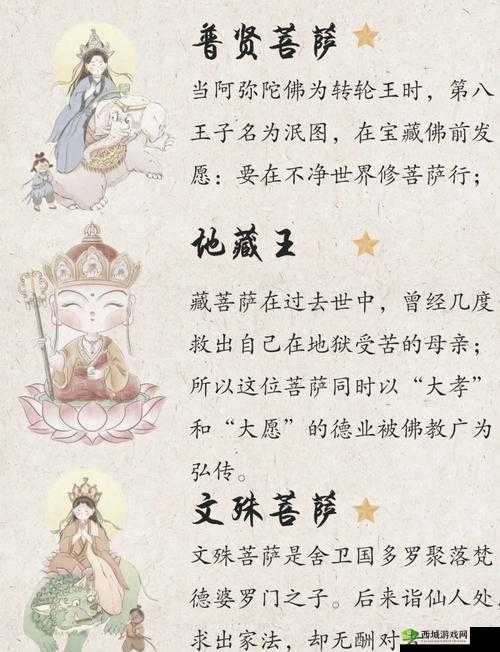 普贤菩萨
当阿弥陀佛为转轮王时，第八
王子名为泯图，在宝藏佛前发
愿：要在不净世界修菩萨行；
地藏王
藏菩萨在过去世中，曾经几度
救出自己在地狱受苦的母亲；
所以这位菩萨同时以“大孝”
和“大愿”的德业被佛教广为
弘传。
文殊菩萨
文殊菩萨是舍卫国多罗聚落梵
德婆罗门之子。后来诣仙人处
求出家法，却无酬对
西城游戏网